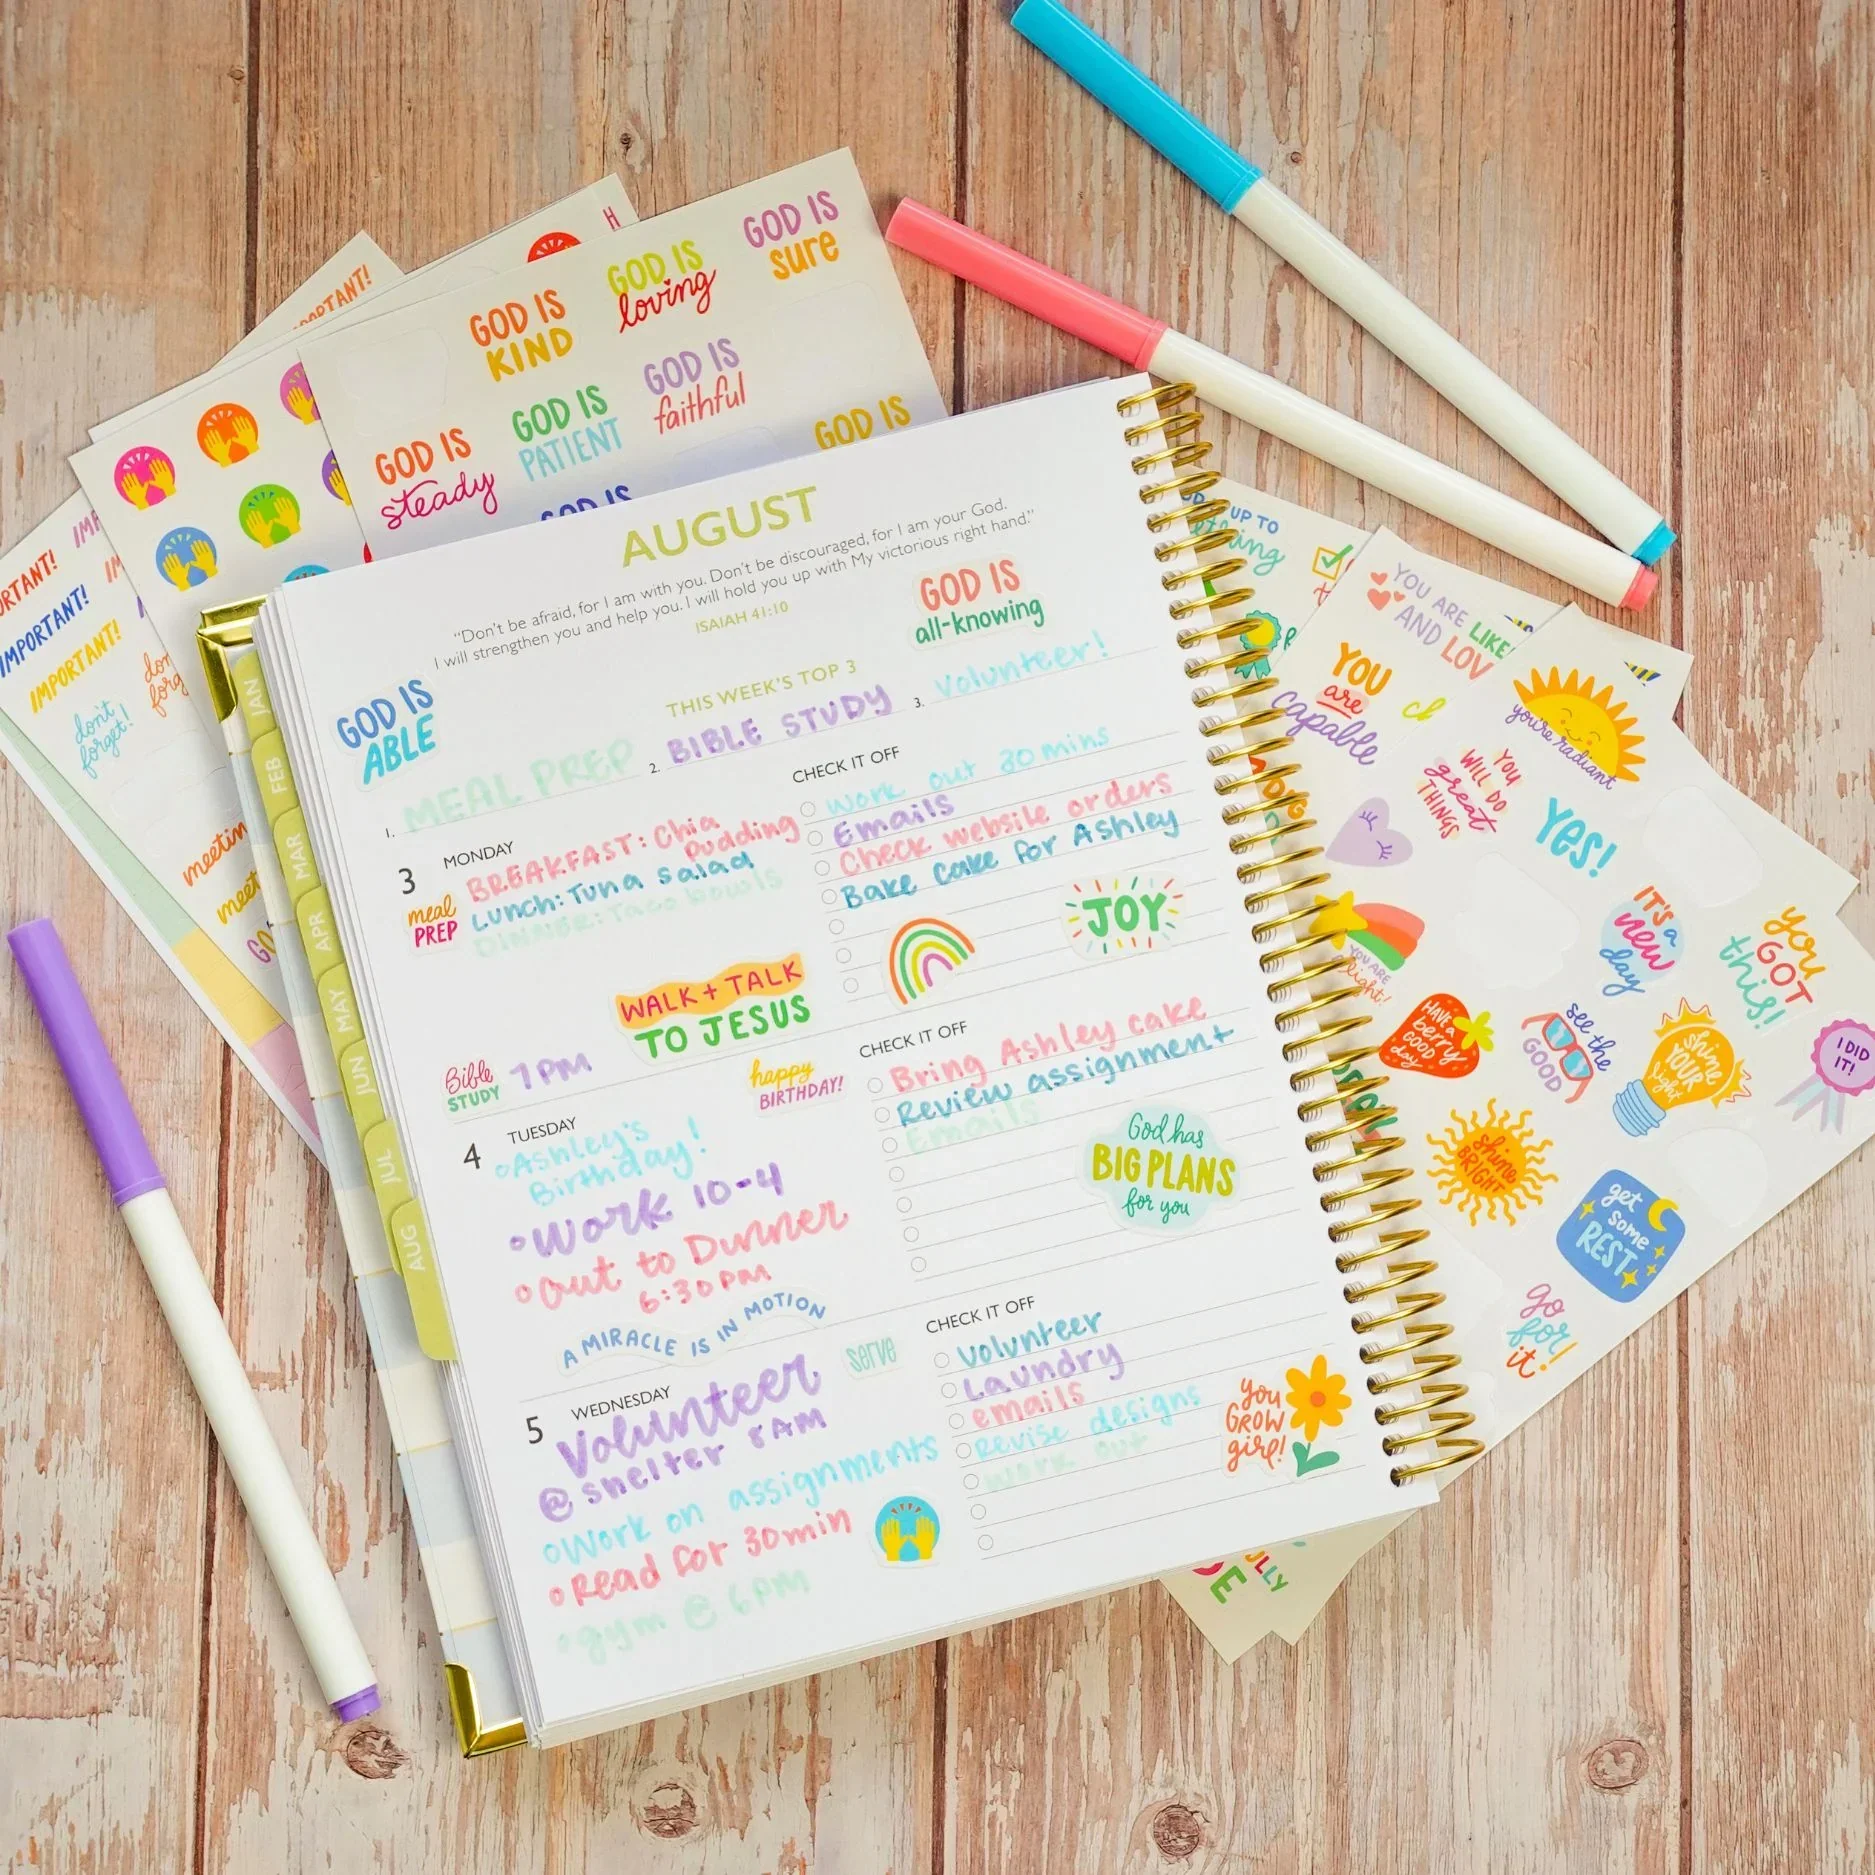 IMPORTANT!
GOD IS
sure
GOD IS
loving
GOD IS
KIND
GOD IS
faithful
GOD IS
PATIENT
GOD IS
steady
GOD IS
GOD IS
IMPORTANT!
IMPORTANT!
don't
forget!
meeting
AUGUST
"Don't be afraid, for I am with you. Don't be discouraged, for I am your God.
I will strengthen you and help you. I will hold you up with My victorious right hand."
ISAIAH 41:10
GOD IS
all-knowing
GOD IS
ABLE
THIS WEEK'S TOP 3
1. MEAL PREP
2. BIBLE STUDY
3. Volunteer!
JAN
FEB
MAR
APR
MAY
JUN
JUL
AUG
3 MONDAY
meal
PREP
BREAKFAST: Chia
pudding
Lunch: Tuna salad
DINNER: Taco bowls
WALK + TALK
TO JESUS
Bible
STUDY
7PM
happy
BIRTHDAY!
CHECK IT OFF
work out 30 mins
Emails
Check website orders
Bake cake for Ashley
JOY
4 TUESDAY
Ashley's
Birthday!
Work 10-4
Out to Dinner
6:30pm
A MIRACLE IS IN MOTION
serve
CHECK IT OFF
Bring Ashley cake
Review assignment
Emails
God has
BIG PLANS
for you
5 WEDNESDAY
Volunteer
@ shelter 8AM
Work on assignments
Read for 30min
gym @ 6pm
CHECK IT OFF
Volunteer
Laundry
emails
Revise designs
work out
you
GROW
girl!
UP TO
YOU ARE LIKE
AND
YOU
are
capable
you're radiant
YOU
WILL DO
great
THINGS
YES!
IT'S a
new
day
you
GOT
this!
YOU ARE
HAVE A
berry
GOOD
day
see the
GOOD
shine
YOUR
light
I DID
IT!
shine
BRIGHT
get
some
REST
go
for
it!